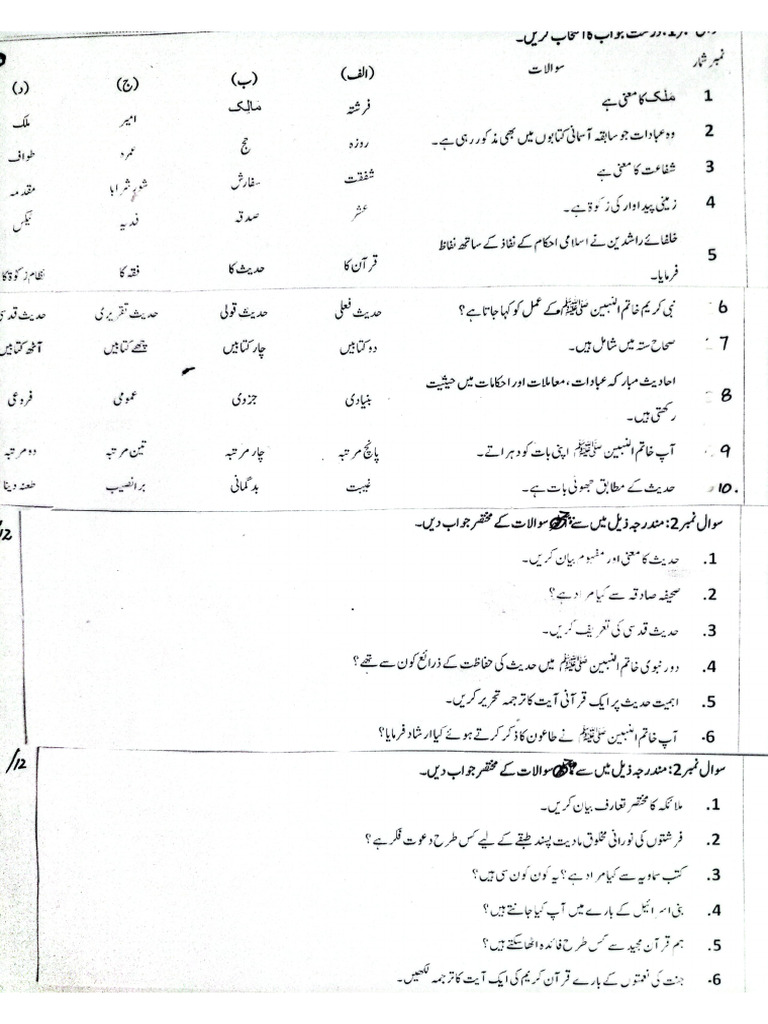 سوال نمبر 1: درست جواب کا انتخاب کریں۔
نمبر شمار سوالات (الف) (ب) (ج) (د)
1 مَلَک کا معنی ہے فرشتہ مَالِک امیر ملک
2 وہ عبادات جو سابقہ آسمانی کتابوں میں بھی مذکور رہی ہے۔ روزہ حج عمرہ طواف
3 شفاعت کا معنی ہے شفقت سفارش شور شرابا مقدمہ
4 زمینی پیداوار کی زکوٰۃ ہے۔ عشر صدقہ فدیہ ٹیکس
5 خلفائے راشدین نے اسلامی احکام کے نفاذ کے ساتھ نفاظ
فرمایا۔ قرآن کا حدیث کا فقہ کا نظام زکوٰۃ کا
6 نبی کریم خاتم النبیین ﷺ کے عمل کو کہا جاتا ہے؟ حدیث فعلی حدیث قولی حدیث تقریری حدیث قدسی
7 صحاح ستہ میں شامل ہیں۔ دو کتابیں چار کتابیں چھے کتابیں آٹھ کتابیں
8 احادیث مبارکہ عبادات، معاملات اور احکامات میں حیثیت
رکھتی ہیں۔ بنیادی جزوی عمومی فروعی
9 آپ خاتم النبیین ﷺ اپنی بات کو دہراتے۔ پانچ مرتبہ چار مرتبہ تین مرتبہ دو مرتبہ
10. حدیث کے مطابق جھوٹی بات ہے۔ غیبت بدگمانی برا نصیب طعنہ دینا
سوال نمبر 2: مندرجہ ذیل میں سے سوالات کے مختصر جواب دیں۔ /12
1. حدیث کا معنی اور مفہوم بیان کریں۔
2. صحیفہ صادقہ سے کیا مراد ہے؟
3. حدیث قدسی کی تعریف کریں۔
4. دور نبوی خاتم النبیین ﷺ میں حدیث کی حفاظت کے ذرائع کون سے تھے؟
5. اہمیت حدیث پر ایک قرآنی آیت کا ترجمہ تحریر کریں۔
6. آپ خاتم النبیین ﷺ نے طاعون کا ذکر کرتے ہوئے کیا ارشاد فرمایا؟
سوال نمبر 2: مندرجہ ذیل میں سے سوالات کے مختصر جواب دیں۔ /12
1. ملائکہ کا مختصر تعارف بیان کریں۔
2. فرشتوں کی نورانی مخلوق مادیت پسند طبقے کے لیے کس طرح دعوت فکر ہے؟
3. کتب سماویہ سے کیا مراد ہے؟ یہ کون کون سی ہیں؟
4. بنی اسرائیل کے بارے میں آپ کیا جانتے ہیں؟
5. ہم قرآن مجید سے کس طرح فائدہ اٹھا سکتے ہیں؟
6. جنت کی نعمتوں کے بارے قرآن کریم کی ایک آیت کا ترجمہ لکھیں۔